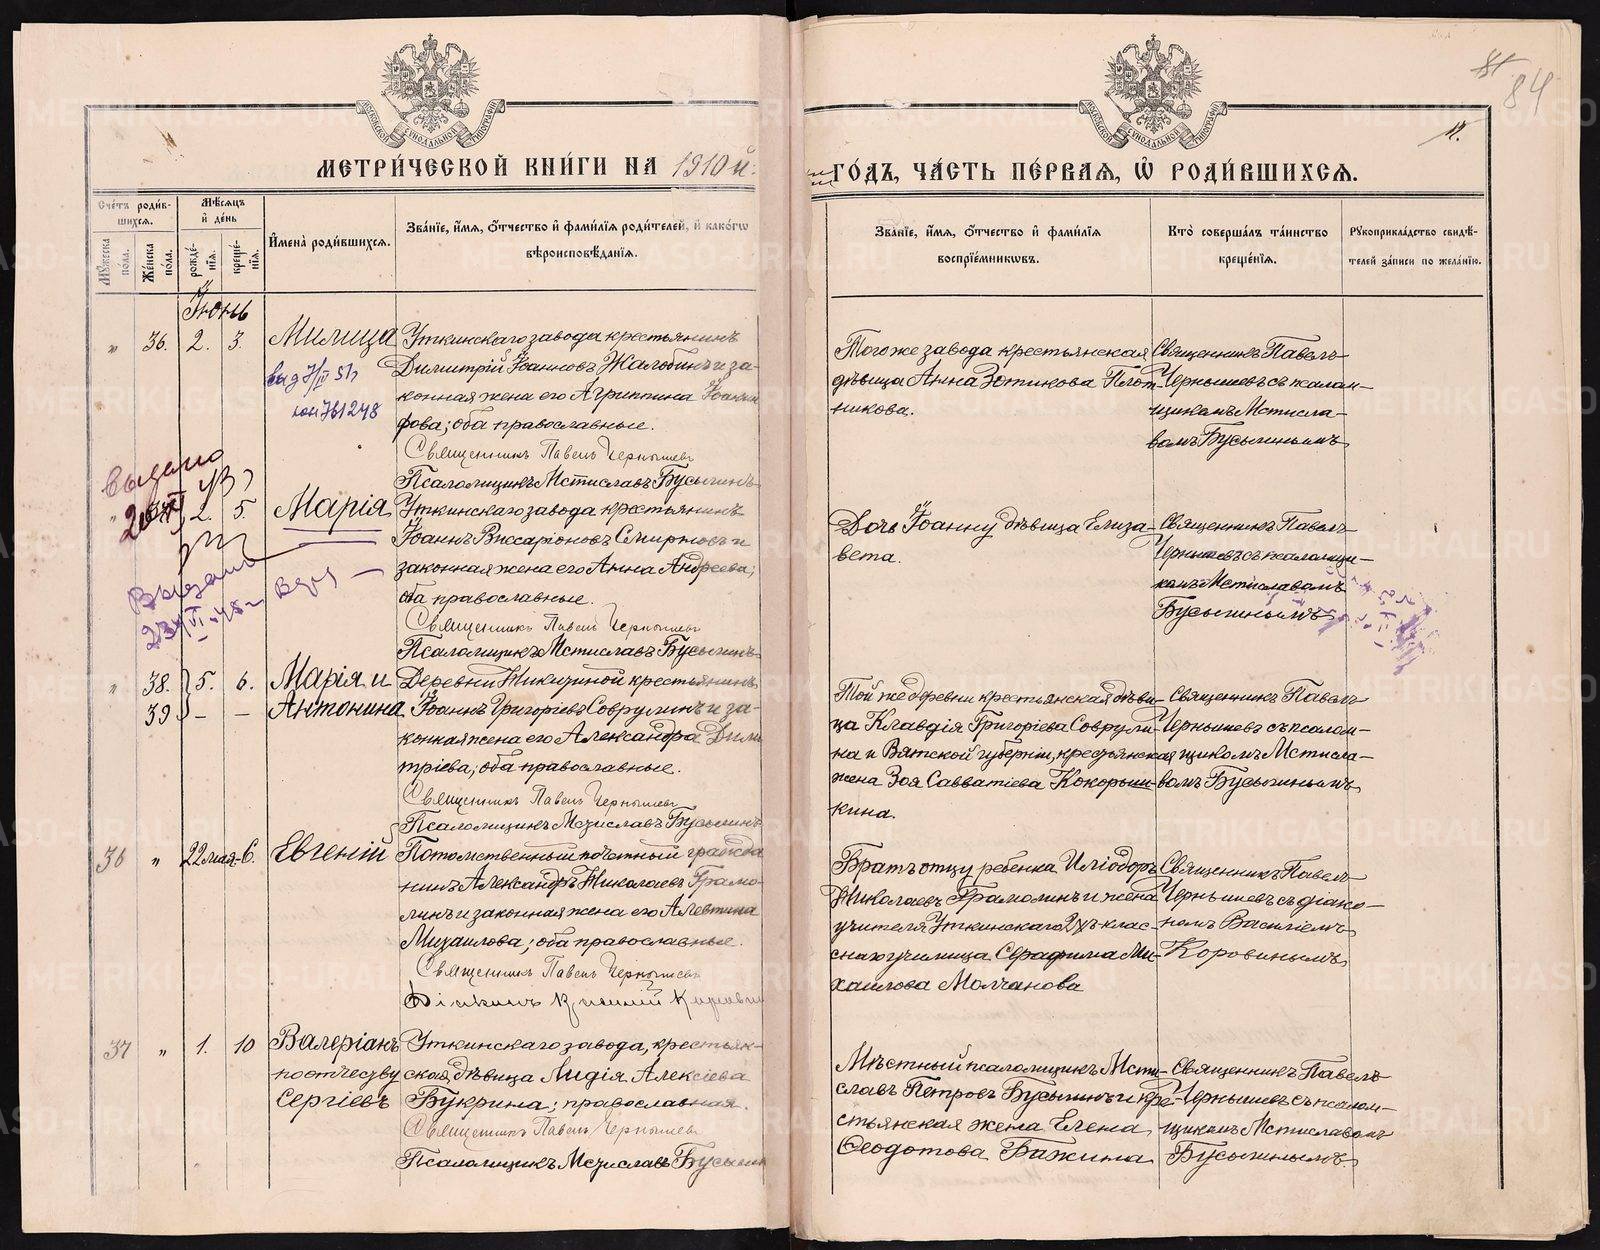 84
11.
МЕТРИ́ЧЕСКОЙ КНИ́ГИ НА 1910 й
ГО́ДЪ, ЧА́СТЬ ПЕ́РВАѦ, Ѡ҆ РОДИ́ВШИХСѦ.
Сче́тъ роди́в-
шихсѧ.
Мꙋ́жеска по́ла.
Же́нска по́ла.
Мѣ́сѧцъ
и҆ де́нь
рожде́-
нїѧ.
креще́-
нїѧ.
И҆мена̀ роди́вшихсѧ.
Зва́нїе, и҆́мѧ, ѻ҆́тчество и҆ фами́лїѧ роди́телей, и҆ како́гѡ
вѣроисповѣ́данїѧ.
Зва́нїе, и҆́мѧ, ѻ҆́тчество и҆ фами́лїѧ
воспрїе́мникѡвъ.
Кто̀ соверша́лъ та́инство
креще́нїѧ.
Рꙋкоприкла́дство свидѣ́-
телей за́писи по жела́нїю.
Іюнь
" 36. 2. 3. Милица
Уткинскаго завода крестьянинъ
Димитрій Іоанновъ Жалобинъ и за-
конная жена его Агриппина
фова; оба православные.
Священникъ Павелъ Чернышевъ
Псаломщикъ Мстиславъ Бусыгинъ
Того же завода крестьянская
дѣвица Анна Зотикова Плот-
никова.
Священникъ Павелъ
Чернышевъ съ псалом-
щикомъ Мстисла-
вомъ Бусыгинымъ
выдано
" 2. 5. Марія
Уткинскаго завода крестьянинъ
Іоаннъ Виссаріоновъ Смирновъ и
законная жена его Анна Андреева;
оба православные.
Священникъ Павелъ Чернышевъ
Псаломщикъ Мстиславъ Бусыгинъ
Дочь Іоанну дѣвица Елиза-
вета.
Священникъ Павелъ
Чернышевъ съ псаломщи-
комъ Мстиславомъ
Бусыгинымъ
" 38. 5. 6. Марія и
39 – – Антонина
Деревни Никитиной крестьянинъ
Іоаннъ Григоріевъ Соврулинъ и за-
конная жена его Александра Дими
тріева; оба православные.
Священникъ Павелъ Чернышевъ
Псаломщикъ Мстиславъ Бусыгинъ
Той же деревни крестьянская дѣви-
ца Клавдія Григоріева Соврули-
на и Вятской губерніи, крестьянская
жена Зоя Савватіева Кокорыш-
кина.
Священникъ Павелъ
Чернышевъ съ псалом-
щикомъ Мстисла-
вомъ Бусыгинымъ
36 " 22 мая 6. Евгеній
Потомственный почетный гражда
нинъ Александръ Николаевъ Грамо-
линъ и законная жена его Алевтина
Михаилова; оба православные.
Священникъ Павелъ Чернышевъ
Братъ отцу ребенка Иліодоръ
Николаевъ Грамолинъ и жена
учителя Уткинскаго 2хъ клас-
снаго училища Серафима Ми-
хаилова Молчанова
Священникъ Павелъ
Чернышевъ съ діако-
номъ Василіемъ
Коровинымъ
37 " 1. 10 Валеріанъ
по отчеству
Сергіевъ
Уткинскаго завода, крестьян-
ская дѣвица Лидія Алексіева
Букрина; православная.
Священникъ Павелъ Чернышевъ
Псаломщикъ Мстиславъ Бусыгин
Мѣстный псаломщикъ Мсти-
славъ Петровъ Бусыгинъ и кре-
стьянская жена Елена
Ѳеодотова Бажина
Священникъ Павелъ
Чернышевъ съ псалом-
щикомъ Мстиславомъ
Бусыгинымъ
METRIKI.GASO-URAL.RU